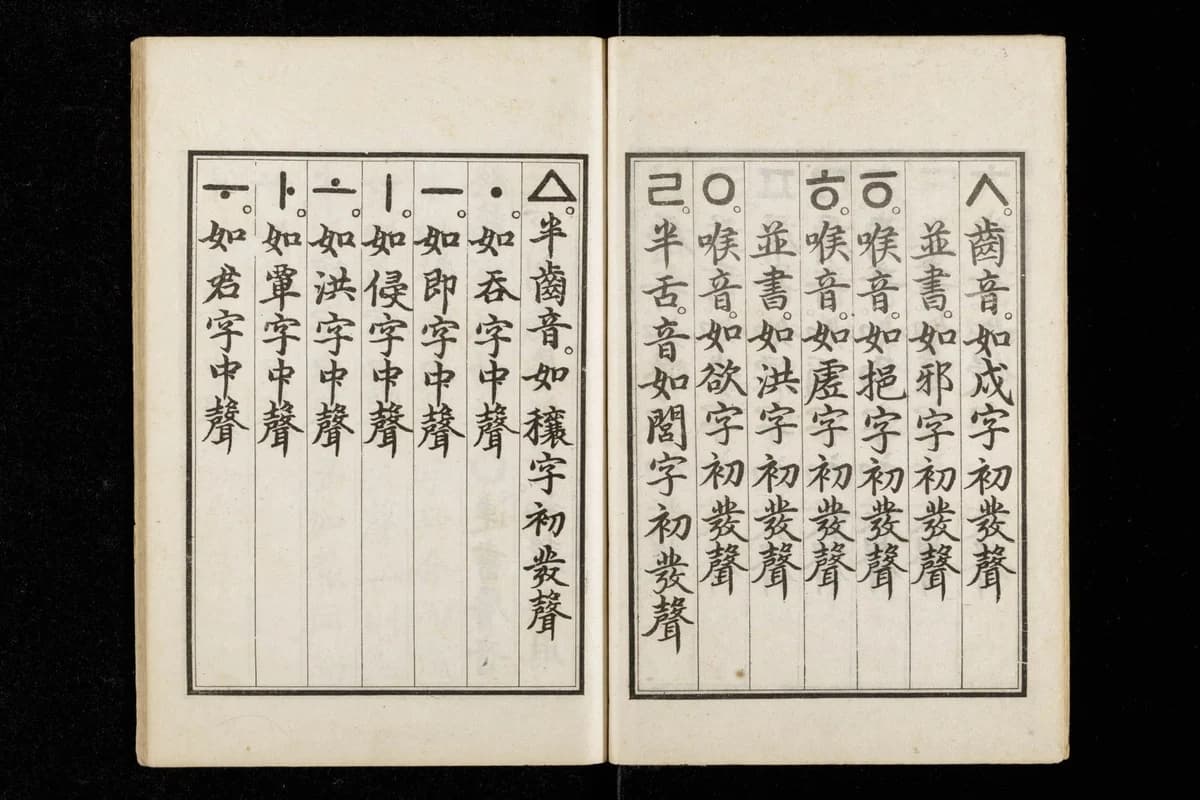 ㅅ。齒音。如戍字初發聲
並書。如邪字初發聲
ㆆ。喉音。如挹字初發聲
ㅎ。喉音。如虛字初發聲
並書。如洪字初發聲
ㅇ。喉音。如欲字初發聲
ㄹ。半舌。音如閭字初發聲
ㅿ。半齒音。如穰字初發聲
ㆍ。如呑字中聲
ㅡ。如即字中聲
ㅣ。如侵字中聲
ㅗ。如洪字中聲
ㅏ。如覃字中聲
ㅜ。如君字中聲